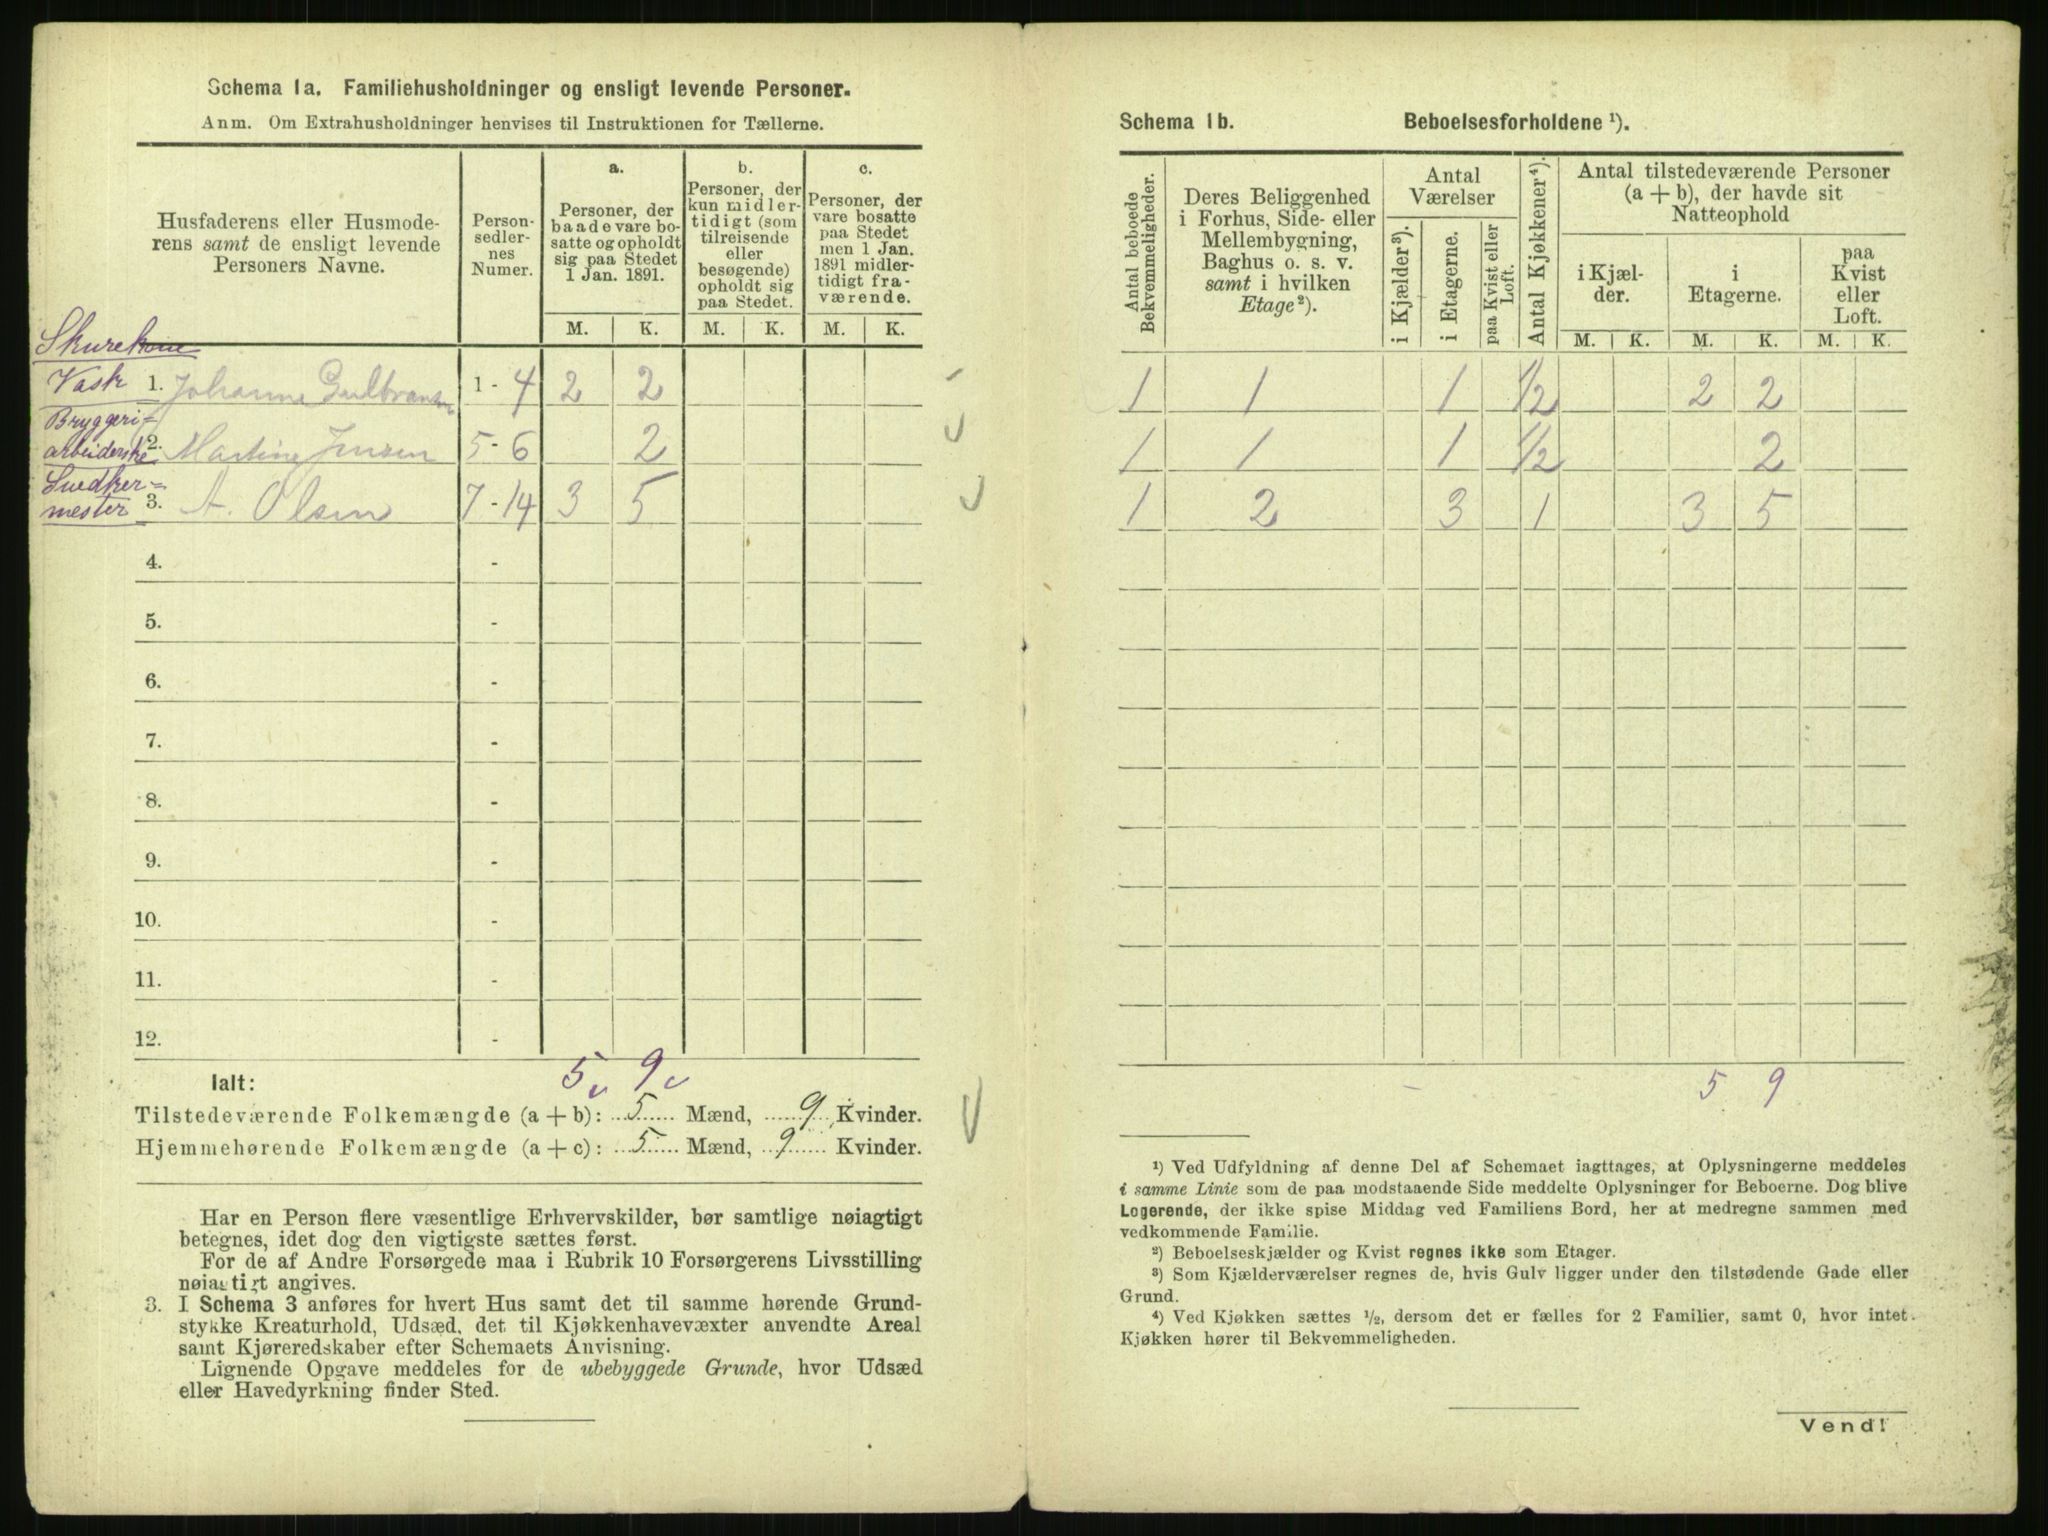 Schema 1a. Familiehusholdninger og ensligt levende Personer.
Anm. Om Extrahusholdninger henvises til Instruktionen for Tællerne.
Husfaderens eller Husmode-
rens samt de ensligt levende
Personers Navne.
Person-
sedler-
nes
Numer.
a.
Personer, der
baade vare bo-
satte og opholdt
sig paa Stedet
1 Jan. 1891.
b.
Personer, der
kun midler-
tidigt (som
tilreisende
eller
besøgende)
opholdt sig
paa Stedet.
c.
Personer, der
vare bosatte
paa Stedet
men 1 Jan.
1891 midler-
tidigt fra-
værende.
M. K. M. K. M. K.
Skurekone
Vask 1. Johanne Gulbransen 1 - 4 2 2
Bryggeri-
arbeiderske 2. Martine Jensen 5 - 6 2
Snedker-
mester 3. A. Olsen 7 - 14 3 5
4. -
5. -
6. -
7. -
8. -
9. -
10. -
11. -
12. -
5 9
Ialt:
Tilstedeværende Folkemængde (a + b): 5 Mænd, 9 Kvinder.
Hjemmehørende Folkemængde (a + c): 5 Mænd, 9 Kvinder.
Har en Person flere væsentlige Erhvervskilder, bør samtlige nøiagtigt
betegnes, idet dog den vigtigste sættes først.
For de af Andre Forsørgede maa i Rubrik 10 Forsørgerens Livsstilling
nøiagtigt angives.
3. I Schema 3 anføres for hvert Hus samt det til samme hørende Grund-
stykke Kreaturhold, Udsæd, det til Kjøkkenhavevæxter anvendte Areal
samt Kjøreredskaber efter Schemaets Anvisning.
Lignende Opgave meddeles for de ubebyggede Grunde, hvor Udsæd
eller Havedyrkning finder Sted.
Schema 1b. Beboelsesforholdene ¹).
Antal beboede
Bekvemmeligheder.
Deres Beliggenhed
i Forhus, Side- eller
Mellembygning,
Baghus o. s. v.
samt i hvilken
Etage ²).
Antal
Værelser
i Kjælder ³).
i Etagerne.
paa Kvist eller
Loft.
Antal Kjøkkener ⁴).
Antal tilstedeværende Personer
(a + b), der havde sit
Natteophold
i Kjæl-
der.
i
Etagerne.
paa
Kvist
eller
Loft.
M. K. M. K. M. K.
1 1 1 1/2 2 2
1 1 1 1/2 2
1 2 3 1 3 5
5 9
¹) Ved Udfyldning af denne Del af Schemaet iagttages, at Oplysningerne meddeles
i samme Linie som de paa modstaaende Side meddelte Oplysninger for Beboerne. Dog blive
Logerende, der ikke spise Middag ved Familiens Bord, her at medregne sammen med
vedkommende Familie.
²) Beboelseskjælder og Kvist regnes ikke som Etager.
³) Som Kjælderværelser regnes de, hvis Gulv ligger under den tilstødende Gade eller
Grund.
⁴) Ved Kjøkken sættes ½, dersom det er fælles for 2 Familier, samt 0, hvor intet
Kjøkken hører til Bekvemmeligheden.
Vend!